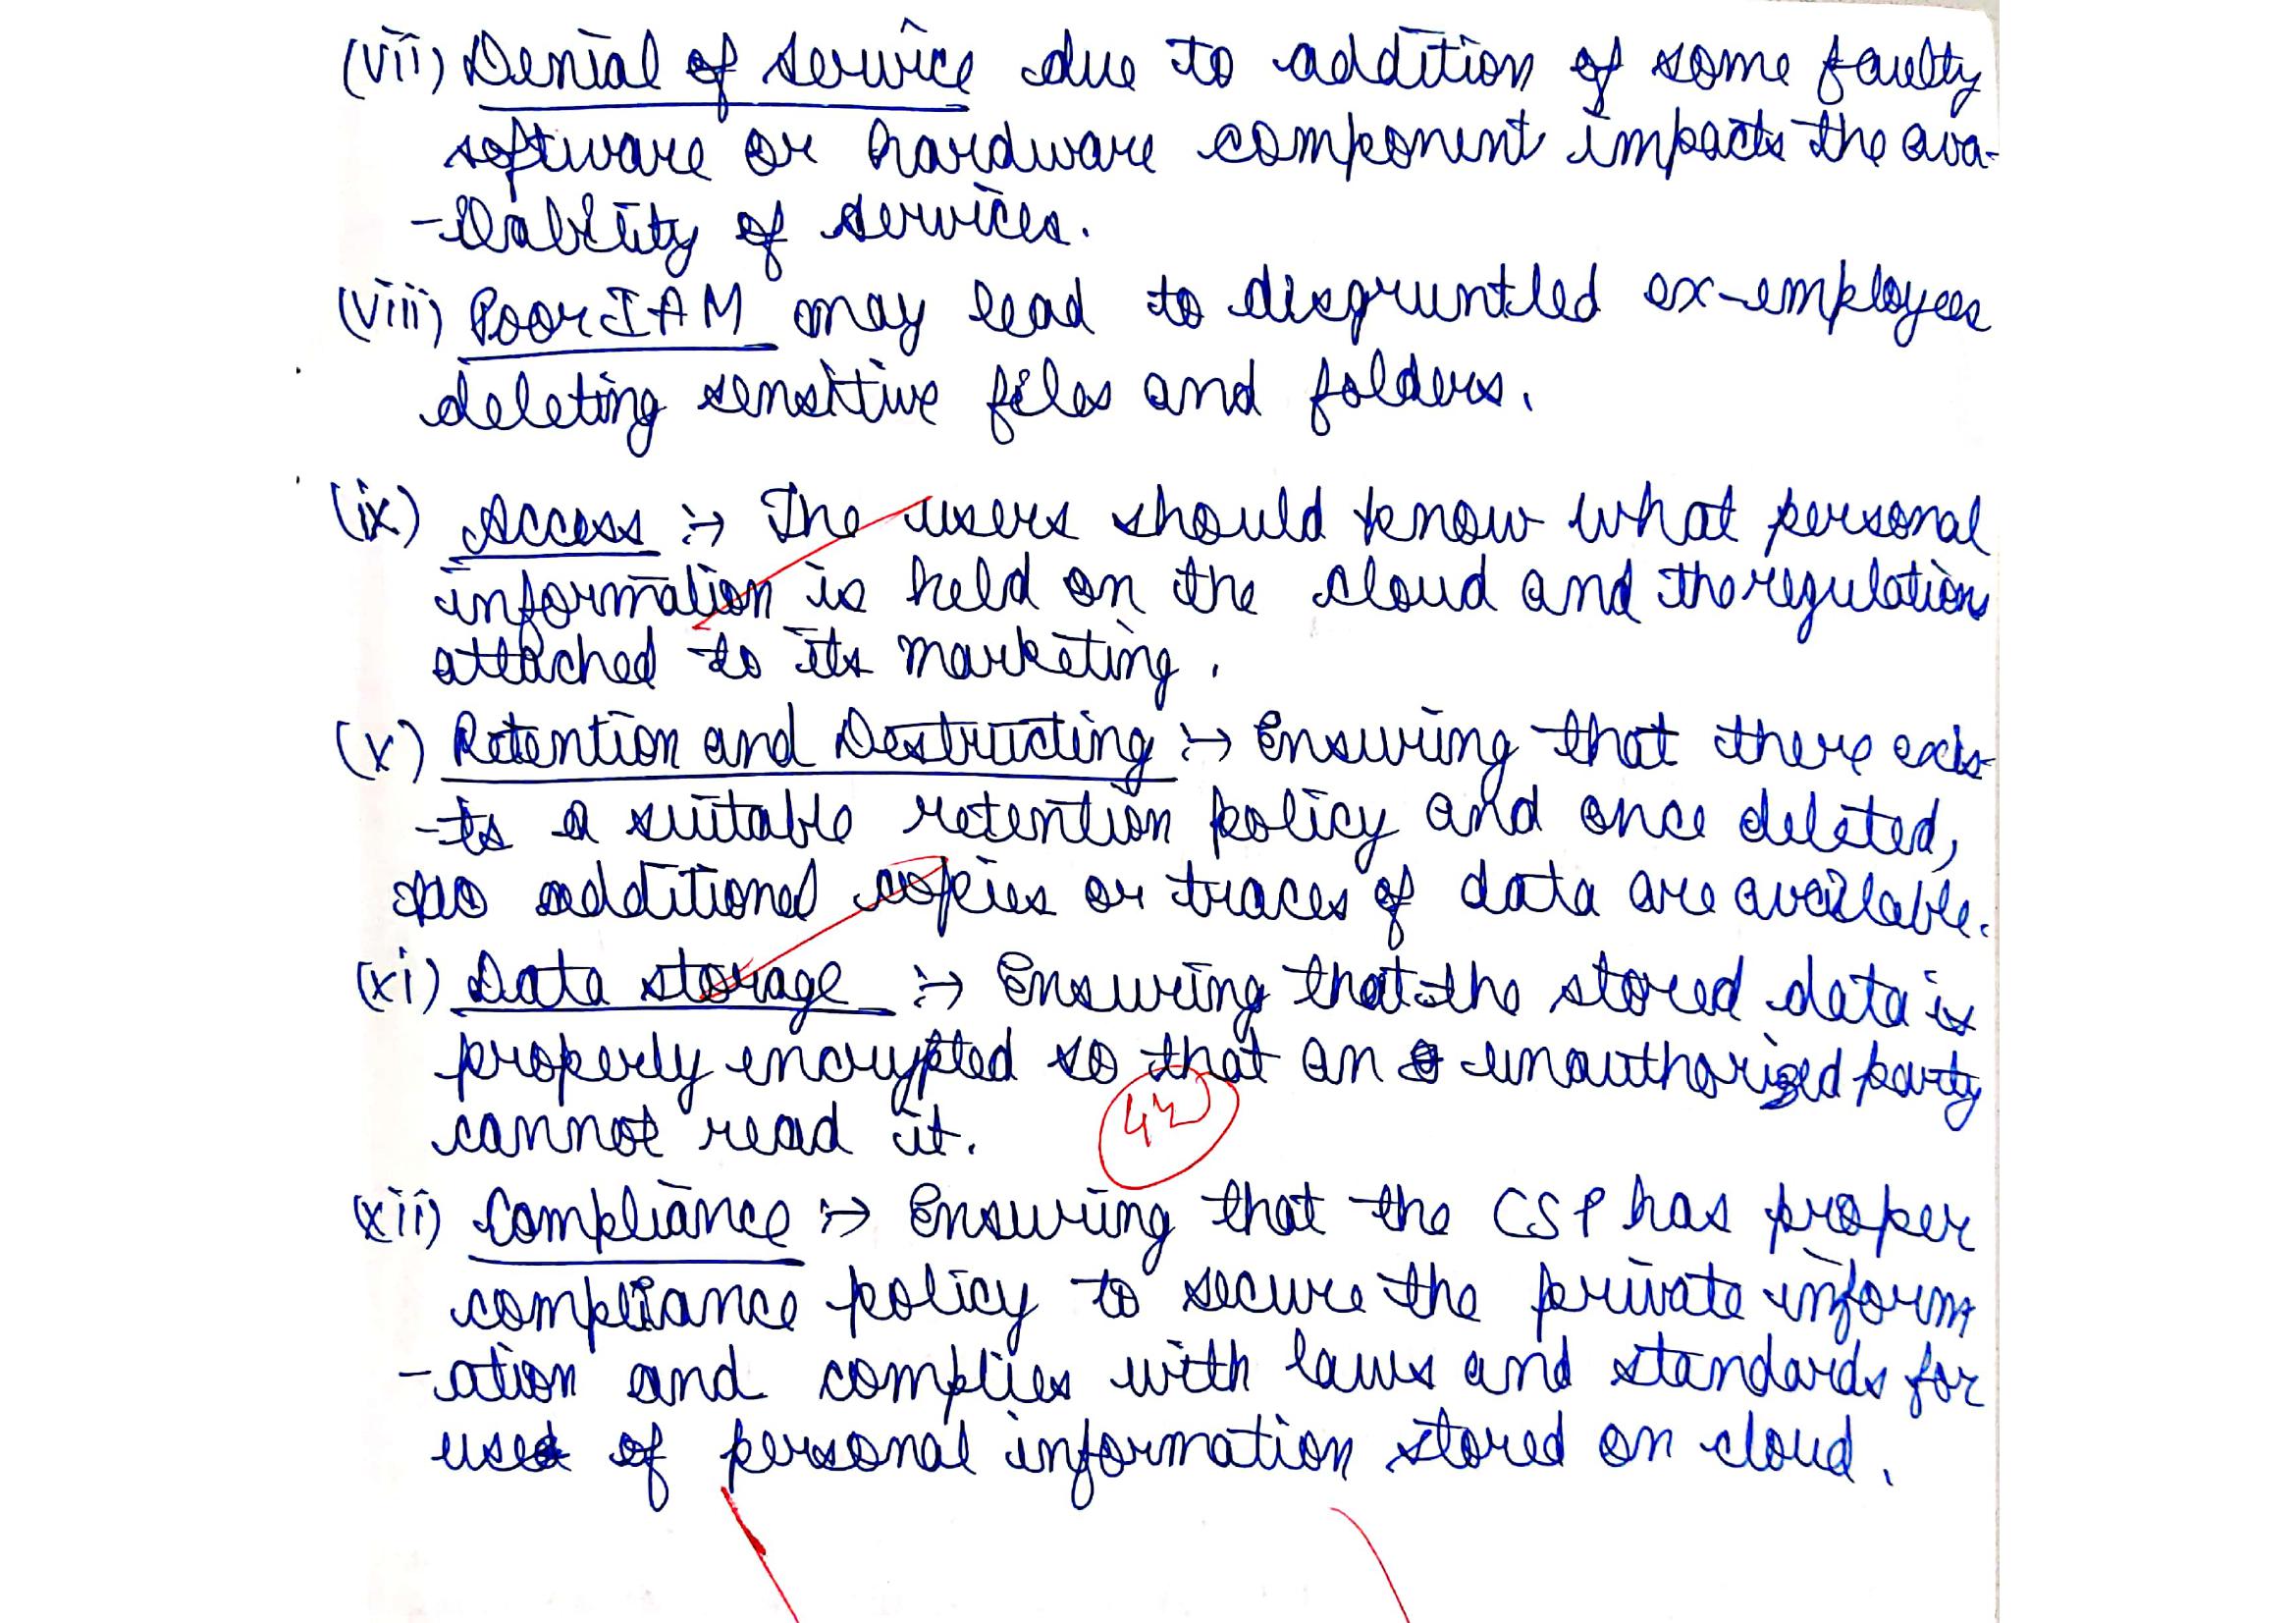 (vii) Denial of service due to addition of some faulty
software or hardware component impacts the ava-
-ilability of services.
(viii) Poor IAM may lead to disgruntled ex-employees
deleting sensitive files and folders.
(ix) Access :→ The users should know what personal
information is held on the cloud and the regulations
attached to its marketing.
(x) Retention and Destructing :→ Ensuring that there exis-
-ts a suitable retention policy and once deleted,
no additional copies or traces of data are available.
(xi) Data storage :→ Ensuring that the stored data is
properly encrypted so that an unauthorized party
cannot read it.
(xii) Compliance :→ Ensuring that the CSP has proper
compliance policy to secure the private inform
-ation and complies with laws and standards for
use of personal information stored on cloud.